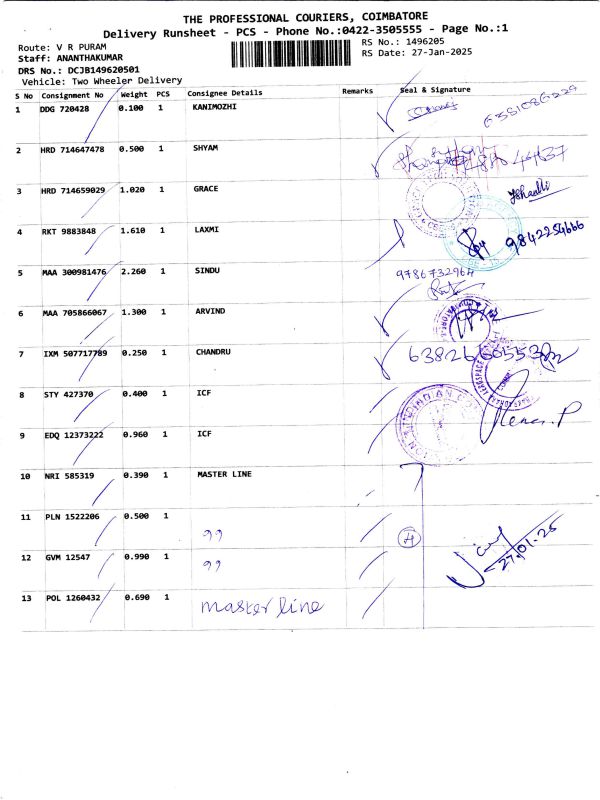 THE PROFESSIONAL COURIERS, COIMBATORE
Delivery Runsheet - PCS - Phone No.:0422-3505555 - Page No.:1
Route: V R PURAM
RS No.: 1496205
Staff: ANANTHAKUMAR
RS Date: 27-Jan-2025
DRS No.: DCJB149620501
Vehicle: Two Wheeler Delivery
S No Consignment No Weight PCS Consignee Details Remarks Seal & Signature
1 DDG 720428 0.100 1 KANIMOZHI
2 HRD 714647478 0.500 1 SHYAM
3 HRD 714659029 1.020 1 GRACE
4 RKT 9883848 1.610 1 LAXMI 9842254666
5 MAA 300981476 2.260 1 SINDU 9786732964
6 MAA 705866067 1.300 1 ARVIND
7 IXM 507717789 0.250 1 CHANDRU
8 STY 427370 0.400 1 ICF
9 EDQ 12373222 0.960 1 ICF
10 NRI 585319 0.390 1 MASTER LINE
11 PLN 1522206 0.500 1 99 4
12 GVM 12547 0.990 1 99 27.01.25
13 POL 1260432 0.690 1 master line